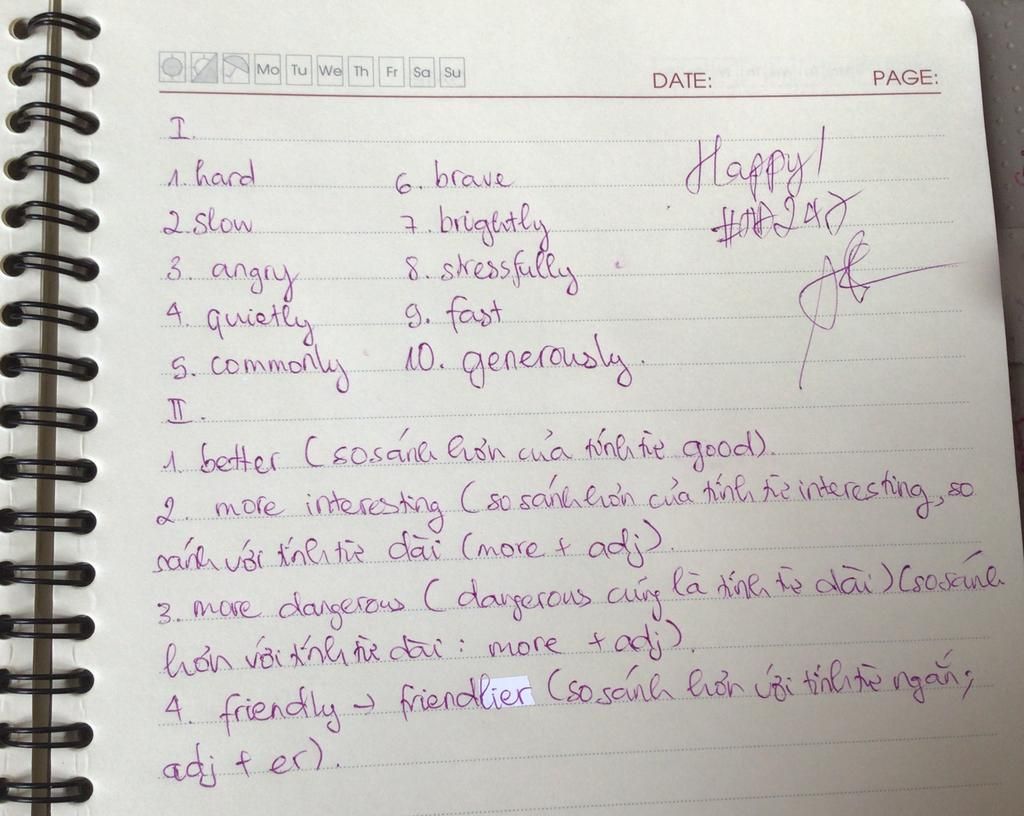 Mo Tu We Th Fr Sa Su
DATE: PAGE:
I.
1. hard 6. brave Happy!
2. slow 7. brightly 247
3. angry 8. stressfully
4. quietly 9. fast
5. commonly 10. generously.
II.
1. better (so sánh hơn của tính từ good).
2. more interesting (so sánh hơn của tính từ interesting, so
sánh với tính từ dài (more + adj).
3. more dangerous (dangerous cũng là tính từ dài) (so sánh
hơn với tính từ dài : more + adj).
4. friendly → friendlier (so sánh hơn với tính từ ngắn;
adj + er).